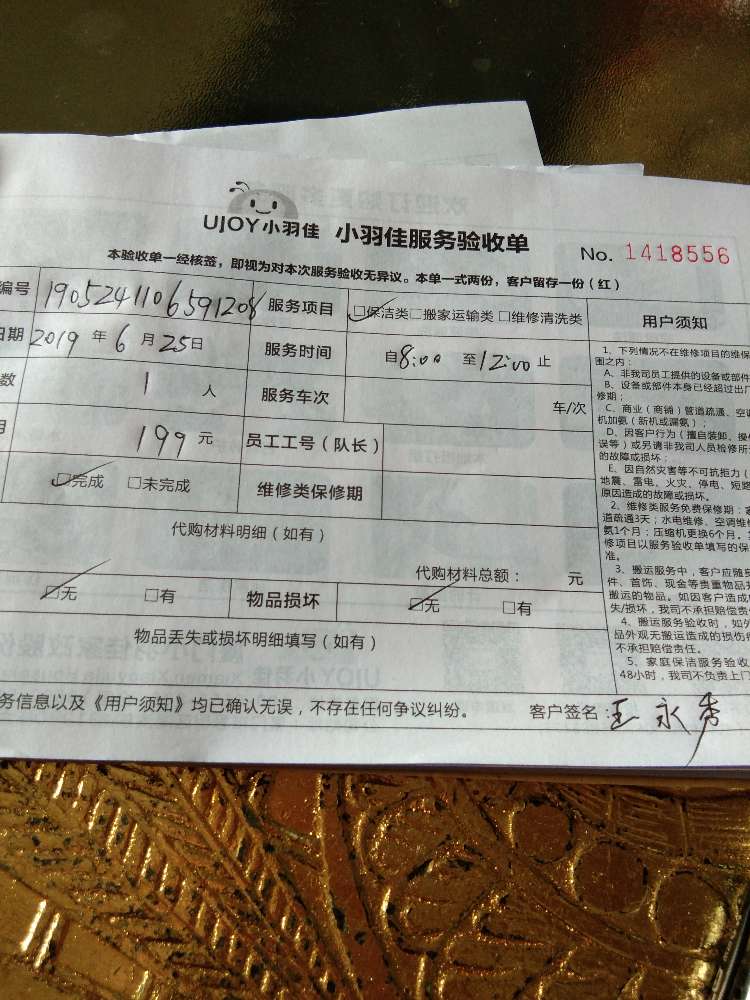 UJOY小羽佳 小羽佳服务验收单
No. 1418556
本验收单一经核签，即视为对本次服务验收无异议。本单一式两份，客户留存一份（红）
编号 1905241106591208 服务项目 □保洁类□搬家运输类 □维修清洗类
日期 2019 年 6 月 25日 服务时间 自8:00 至12:00 止
数 1 人 服务车次 车/次
199 元 员工工号（队长）
□完成 □未完成 维修类保修期
代购材料明细（如有）
代购材料总额： 元
□无 □有 物品损坏 □无 □有
物品丢失或损坏明细填写（如有）
务信息以及《用户须知》均已确认无误，不存在任何争议纠纷。 客户签名：王永秀
用户须知
1、下列情况不在维修项目的维保
围之内：
A、非我司员工提供的设备或部件
B、设备或部件本身已经超过出厂
修期；
C、商业（商铺）管道疏通、空调
机加氨（新机或漏氨）；
D、因客户行为（擅自装卸、操作
误等）或另请非我司人员检修所
的故障或损坏；
E、因自然灾害等不可抗拒力（
地震、雷电、火灾、停电、短路
原因造成的故障或损坏。
2、维修类服务免费保修期：家
道疏通3天；水电维修、空调维修
氨1个月；压缩机更换6个月。其
修项目以服务验收单填写的保
准。
3、搬运服务中，客户应随身
件、首饰、现金等贵重物品
搬运的物品。如因客户造成
失/损坏，我司不承担赔偿责
4、搬运服务验收时，如外
品外观无搬运造成的损伤
不承担赔偿责任。
5、家庭保洁服务验收
48小时，我司不负责上门